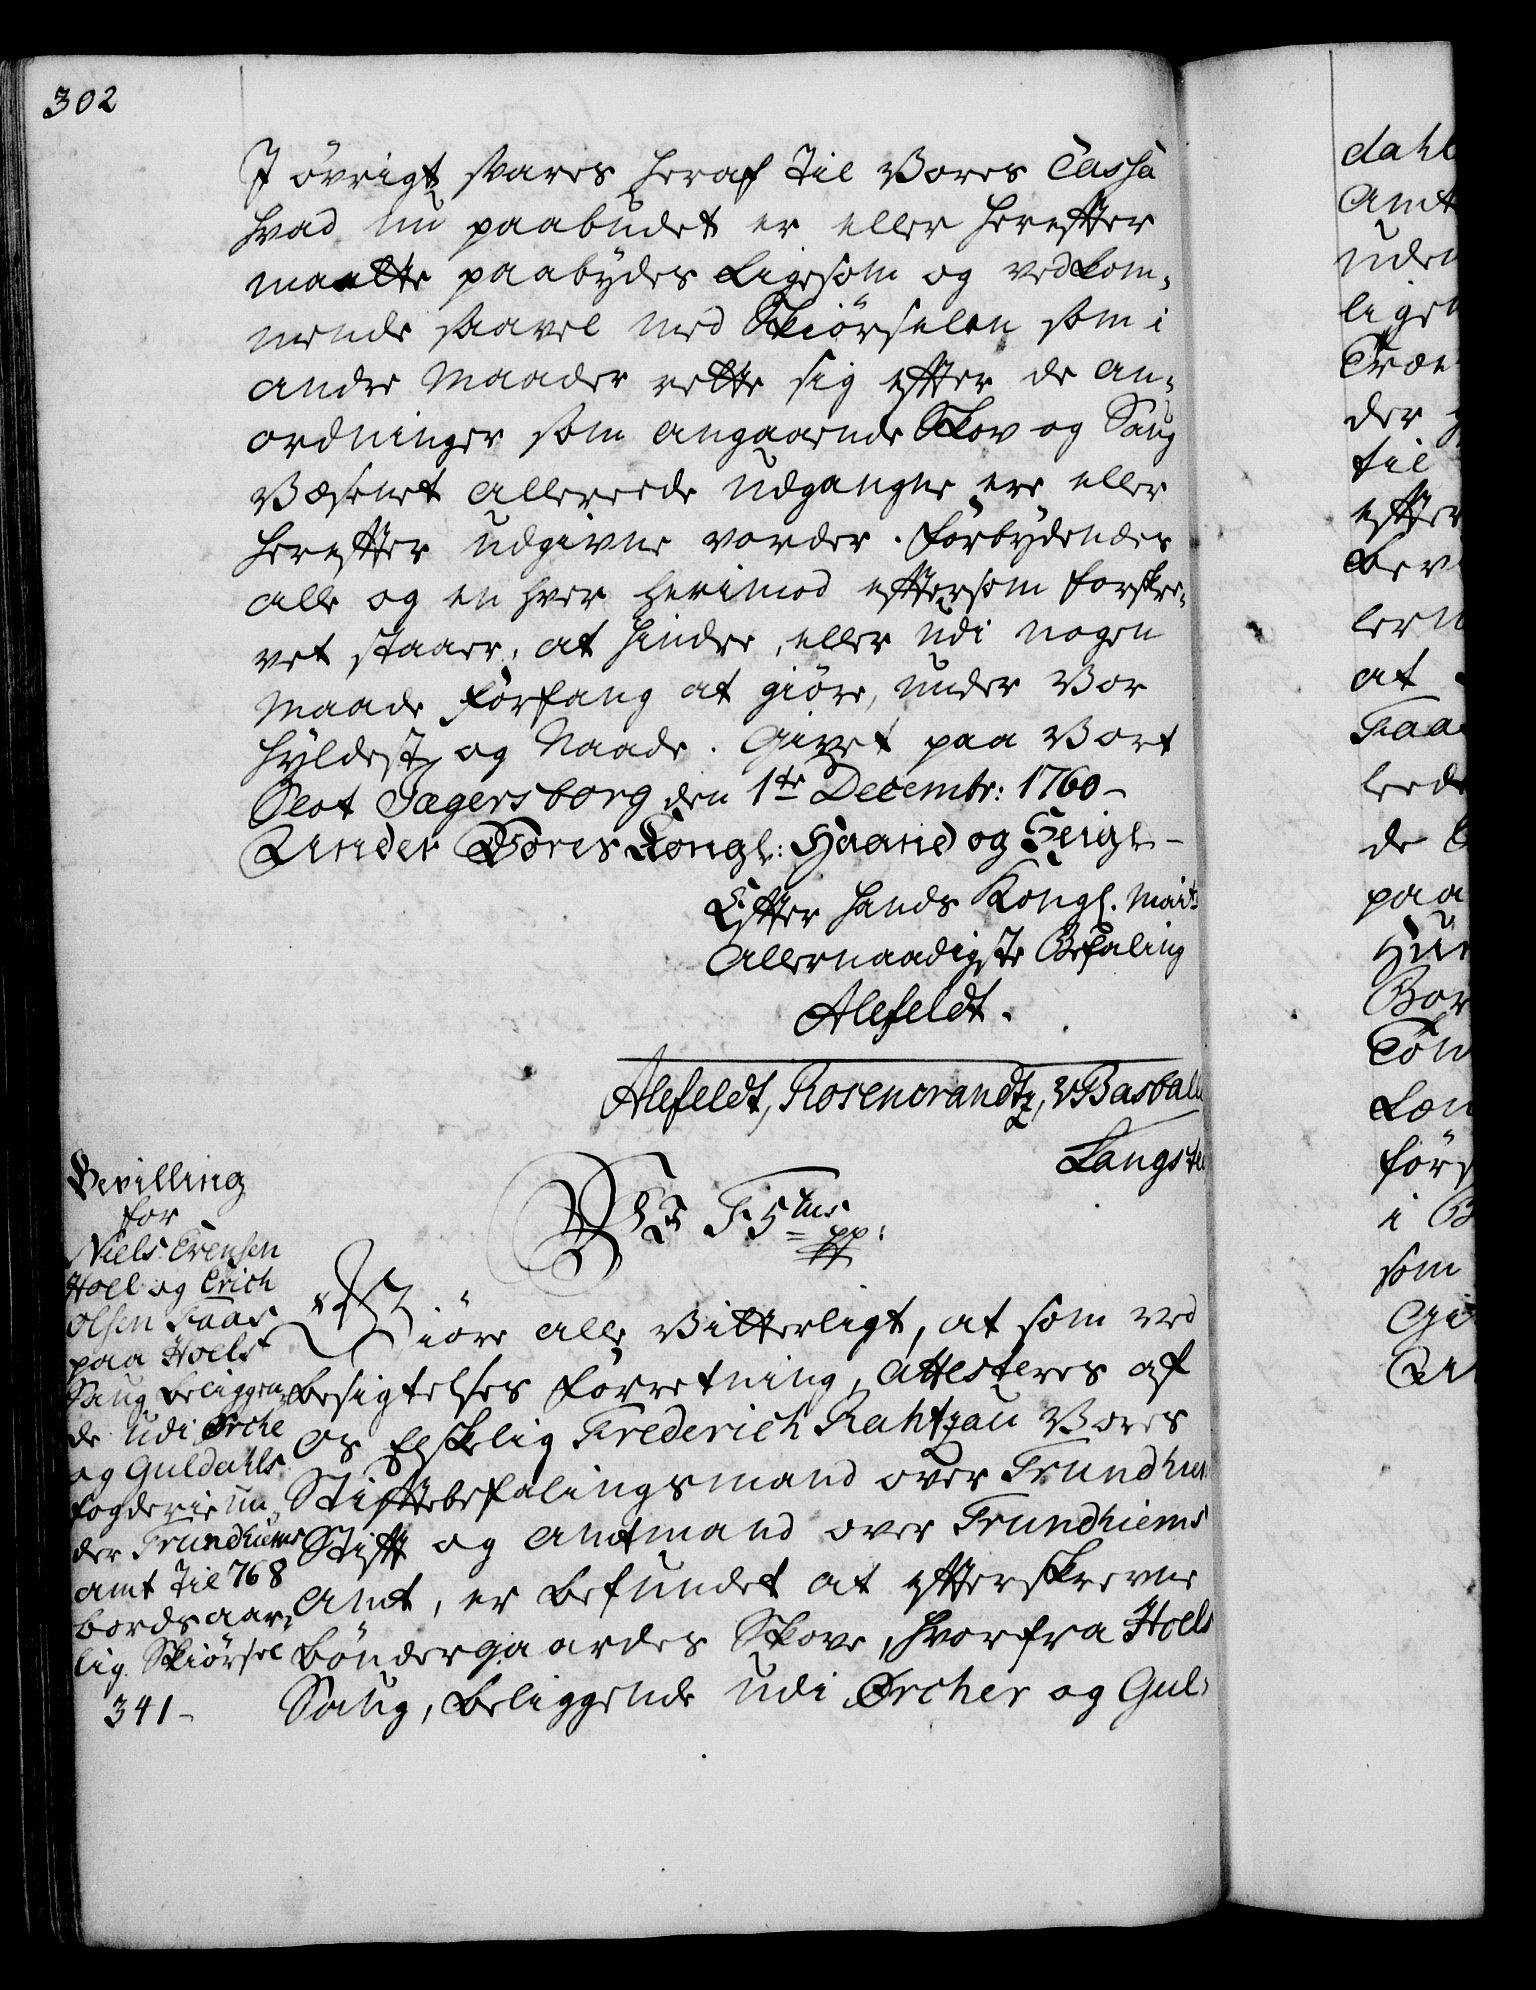 302
I øvrigt svares heraf til Vores Casha
hvad nu paabudet er eller herefter
maatte paabydes ligesom og vedkom-
mende saavel med Skiørselen som i
andre Maader rette sig efter de An-
ordninger som angaaende Skov og Saug
Væsenet allereede udgangne ere eller
herefter udgivne vorder. Forbydendes
alle og en hver herimod eftersom forskre-
vet staaer, at hindre, eller udi nogen
Maade Forfang at giøre, under Vor
Hyldest og Naade. Givet paa Vort
Slot Jægersborg den 1te Decembr: 1760-
Under Vores Kongl: Haand og Seigl-
Efter Hands Kongl. Mait:
Allernaadigste Befaling
Alefeldt.
Alefeldt, Rosencrandtz, v Basball
Langste
Bevilling
for
Niels Evensen
Hoel og Erich
Olsen Faar
paa Hoels
Saug beliggen-
de udi Ørche
og Guldahls
fogderie un-
der Trundhiems
Amt til 768
bords aar-
lig Skiørsel
341-
VI F5tus pp:
Giøre alle Vitterligt, at som ved
besigtelses Forretning, attesteres af
Os Elskelig Frederich Rahtzau Vores
Stiftbefalingsmand over Trundhiem
Stift og Amtmand over Trundhiems
Amt, er befundet at efterskrevne
bøndergaardes Skove, hvorfra Hoels
Saug, beliggende udi Ørcher og Gul-
dahl
Amt
uden
ligen
der
til
efter
at
de
paa
i B
som